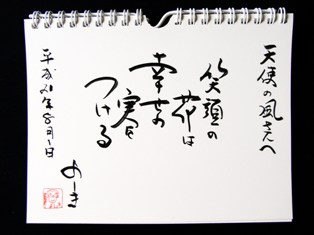 天使の風さんへ
笑顔の
花は
幸せの
実を
つける
平成21年8月1日